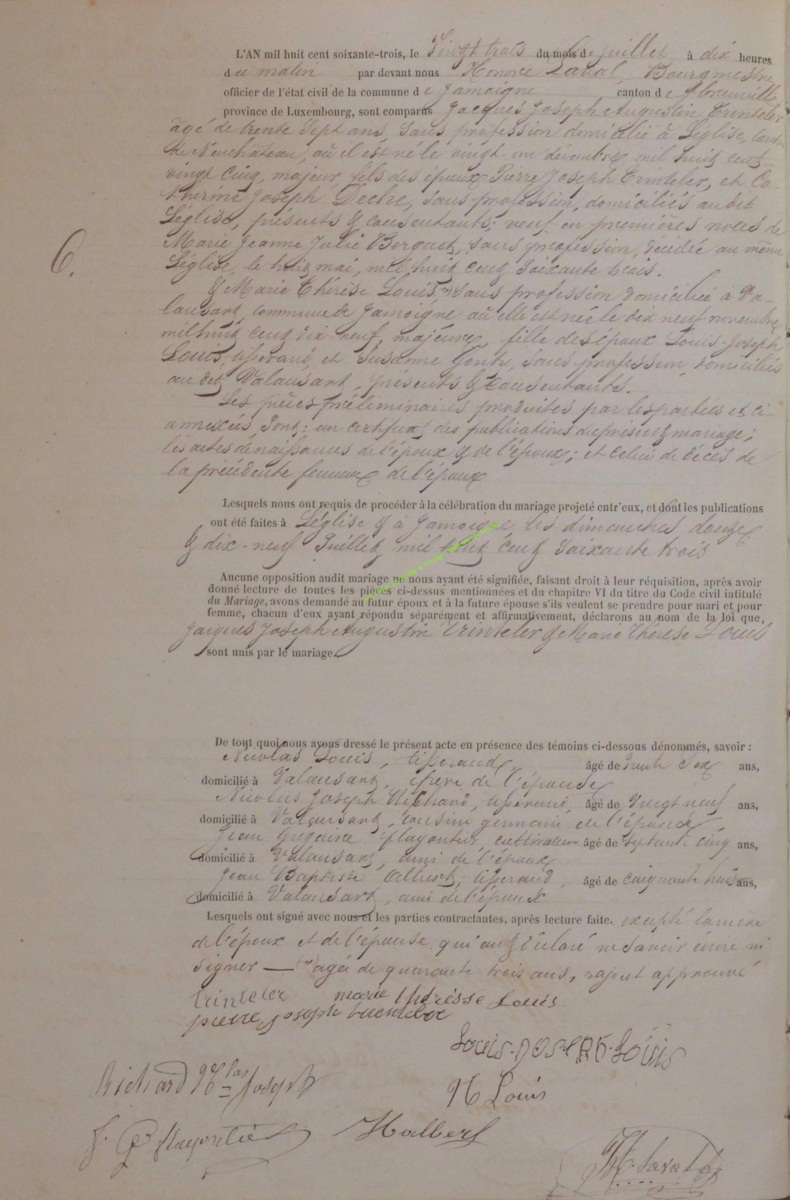 L'AN mil huit cent soixante-trois, le Vingt trois du mois de Juillet, à dix heures
du matin par devant nous Honoré Laval, Bourgmestre
officier de l'état civil de la commune de Jamoigne canton de
province de Luxembourg, sont comparus Jacques Joseph Augustin Trinteler
âgé de trente sept ans, sans profession domicilié à Léglise, canton
de Neufchateau, où il est né le vingt un décembre mil huit cent
vingt cinq, majeur, fils des epoux Pierre Joseph Trinteler, et Ca-
therine Joseph sans profession, domiciliés audit
Léglise, présents & consentants; veuf en premières noces de
Marie Jeanne Julie sans profession, décédée au même
Léglise, le huit mai, mil huit cent soixante trois.
6.
& Marie Thérèse Louis, sans profession domiciliée à Va-
lansart, commune de Jamoigne où elle est née le dix neuf novembre
mil huit cent dix-neuf, majeure, fille des époux Louis-Joseph
Louis, tisserand et Susanne sans profession, domiciliés
au dit Valansart, présents & consentants.
Les pièces préliminaires produites par les parties et ci-
annexées sont: un certificat des publications du présent mariage;
les actes de naissances de l'époux & de l'épouse; et celui de décès de
la précédente femme de l'époux
Lesquels nous ont requis de procéder à la célébration du mariage projeté entr'eux, et dont les publications
ont été faites à Léglise & à Jamoigne les dimanches douze
& dix-neuf Juillet mil huit cent soixante trois
Aucune opposition audit mariage ne nous ayant été signifiée, faisant droit à leur réquisition, après avoir
donné lecture de toutes les pièces ci-dessus mentionnées et du chapitre VI du titre du Code civil intitulé
du Mariage, avons demandé au futur époux et à la future épouse s'ils veulent se prendre pour mari et pour
femme, chacun d'eux ayant répondu séparément et affirmativement, déclarons au nom de la loi que,
Jacques Joseph Augustin Trinteler & Marie Thérèse Louis
sont unis par le mariage.
De tout quoi nous avons dressé le présent acte en présence des témoins ci-dessous dénommés, savoir :
Nicolas Louis, tisserand, âgé de trente six ans,
domicilié à Valansart, frère de l'épouse
Nicolas Joseph Richard, tisserand, âgé de vingt neuf ans,
domicilié à Valansart, cousin germain de l'épouse,
Jean Grégoire cultivateur âgé de septante cinq ans,
domicilié à Valansart, ami de l'époux
Jean Baptiste Albert, tisserand, âgé de cinquante huit ans,
domicilié à Valansart, ami de l'époux
Lesquels ont signé avec nous et les parties contractantes, après lecture faite. excepté la mère
de l'époux et de l'épouse qui ont déclaré ne savoir écrire ni
signer — âgée de quarante trois ans, rajout approuvé
trinteler marie thérèsse Louis
pierre joseph trinteler
Louis-JOSEPH-Louis
Richard Nlas Joseph N Louis
J. G. Halbert H. Laval